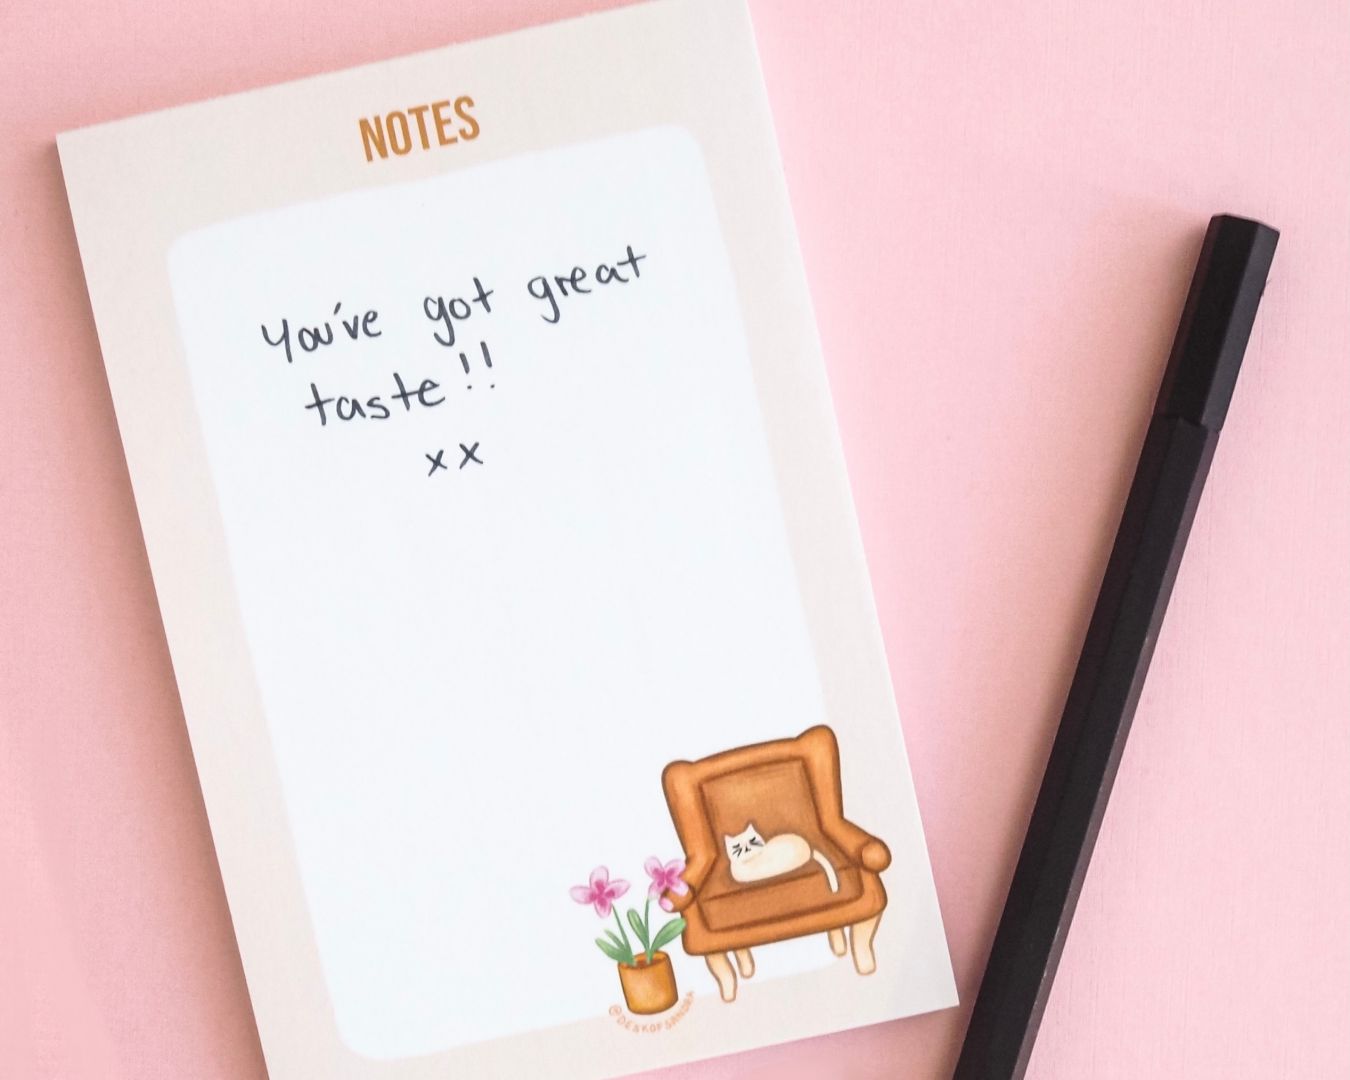 NOTES
You've got great
taste!!
xx
@DESKOFSANDRA